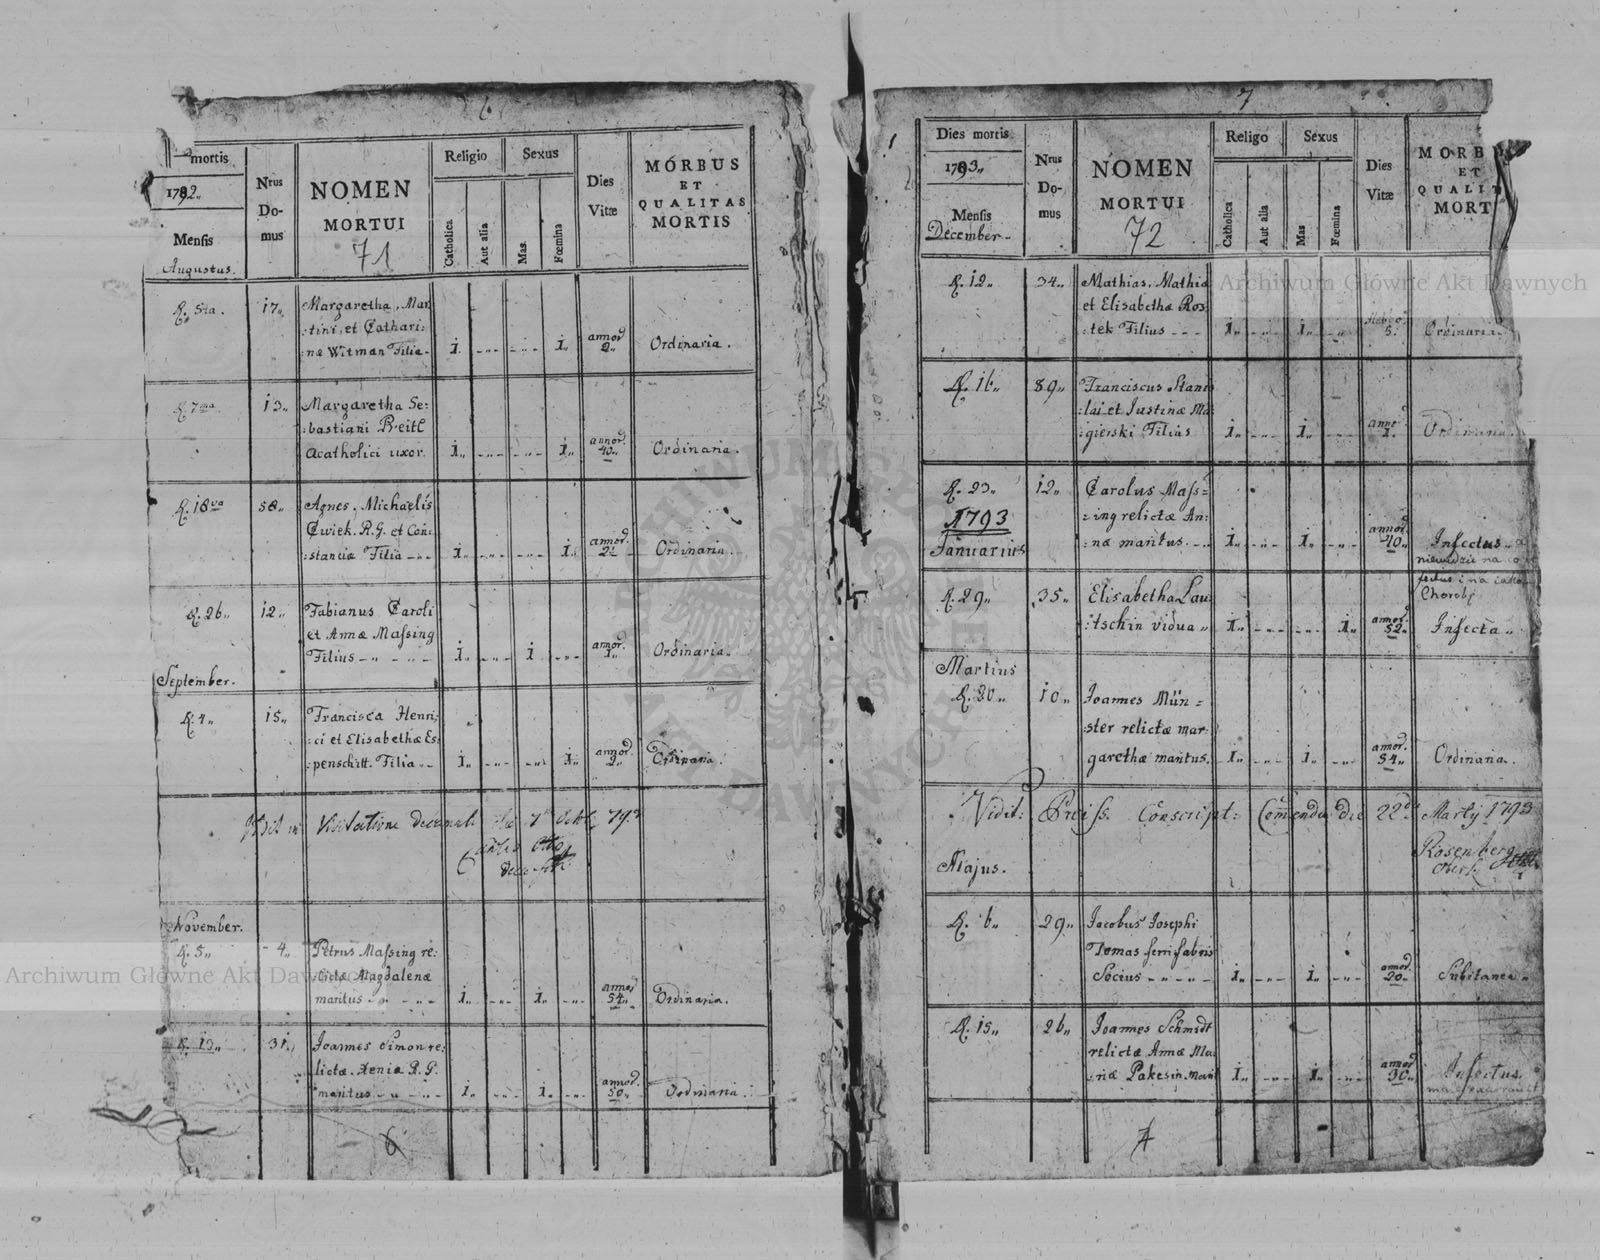 6
mortis
1792.
Mensis
Augustus.
Nrus Do-mus
NOMEN
MORTUI
71
Religio
Catholica
Aut alia
Sexus
Mas.
Fœmina
Dies
Vitæ
MORBUS
ET
QUALITAS
MORTIS
R. 5ta. 17.
Margaretha, Mar
:tini, et Cathari:
:næ Witman Filia- 1. 1. annor. 2. Ordinaria.
R. 7ma 13.
Margaretha Se:
:bastiani Preitl
Acatholici uxor. 1. 1. annor. 40. Ordinaria.
R. 18va 58.
Agnes, Michaelis
Cwiek. R.G. et Con:
:stancia Filia 1. 1. annor. 2. Ordinaria.
R. 26 12.
Fabianus Caroli
et Annæ Massing
Filius 1. 1 annor. 1. Ordinaria.
September.
R. 4 15
Francisca Henri:
:ci et Elisabethæ Es:
:penschitt. Filia 1. 1. annor. 2. Ordinaria.
Visitatione 793
November.
R. 5 4.
Petrus Massing re:
lictæ Magdalenæ
maritus 1. 1. annor 54. Ordinaria.
R. 13 31.
Joannes Simon re:
lictæ Xenia R.G.
maritus 1. 1. annor. 50. Ordinaria.
6
7
Dies mortis
1793.
Mensis
December
Nrus Do-mus
NOMEN
MORTUI
72
Religo
Catholica
Aut alia
Sexus
Mas
Fœmina
Dies
Vitæ
MORB
ET
QUALIT
MORT
R. 12 34.
Mathias, Mathia
et Elisabethæ Ros
:tek Filius 1. 1. 5. Ordinaria
R. 16 89.
Franciscus Stanis
:lai et Justinæ Ma:
:gierski Filius 1. 1. annor. 1. Ordinaria
R. 23 12.
Carolus Mass=
:ing relictæ An:
:næ maritus. 1. 1. annor. 40. Infectus
1793
Januarius
Choroby
R. 29 35.
Elisabetha Lau
:tschin vidua 1. 1. annor. 52. Infecta
Martius
R. 20 10
Joannes Mün=
ster relictæ mar:
garethæ maritus. 1. 1. annor. 54. Ordinaria.
Vidit: Preiss. Conscript: die 22 Marty 1793
Rosenberg
Majus.
R. 6 29.
Jacobus Josephi
Tomas ferrifabris
Socius 1. 1. annor. 20. Subitanea
R. 15 26.
Joannes Schmidt
relictæ Annæ Ma:
:næ Pakesin. Marit 1. 1. annor 30. Infectus.
7
Archiwum Główne Akt Dawnych
Archiwum Główne Akt Dawnych
ARCHIWUM GŁÓWNE AKT DAWNYCH